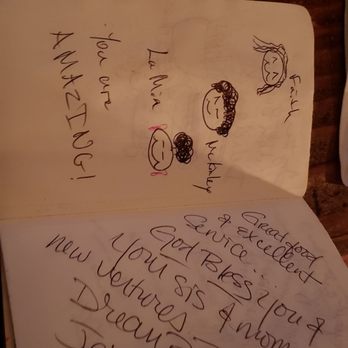 Faith
McKaley
La Mia
You are
AMAZING!
Great food
& excellent
service...
God Bless you &
your sis & mom
new ventures -
Dream